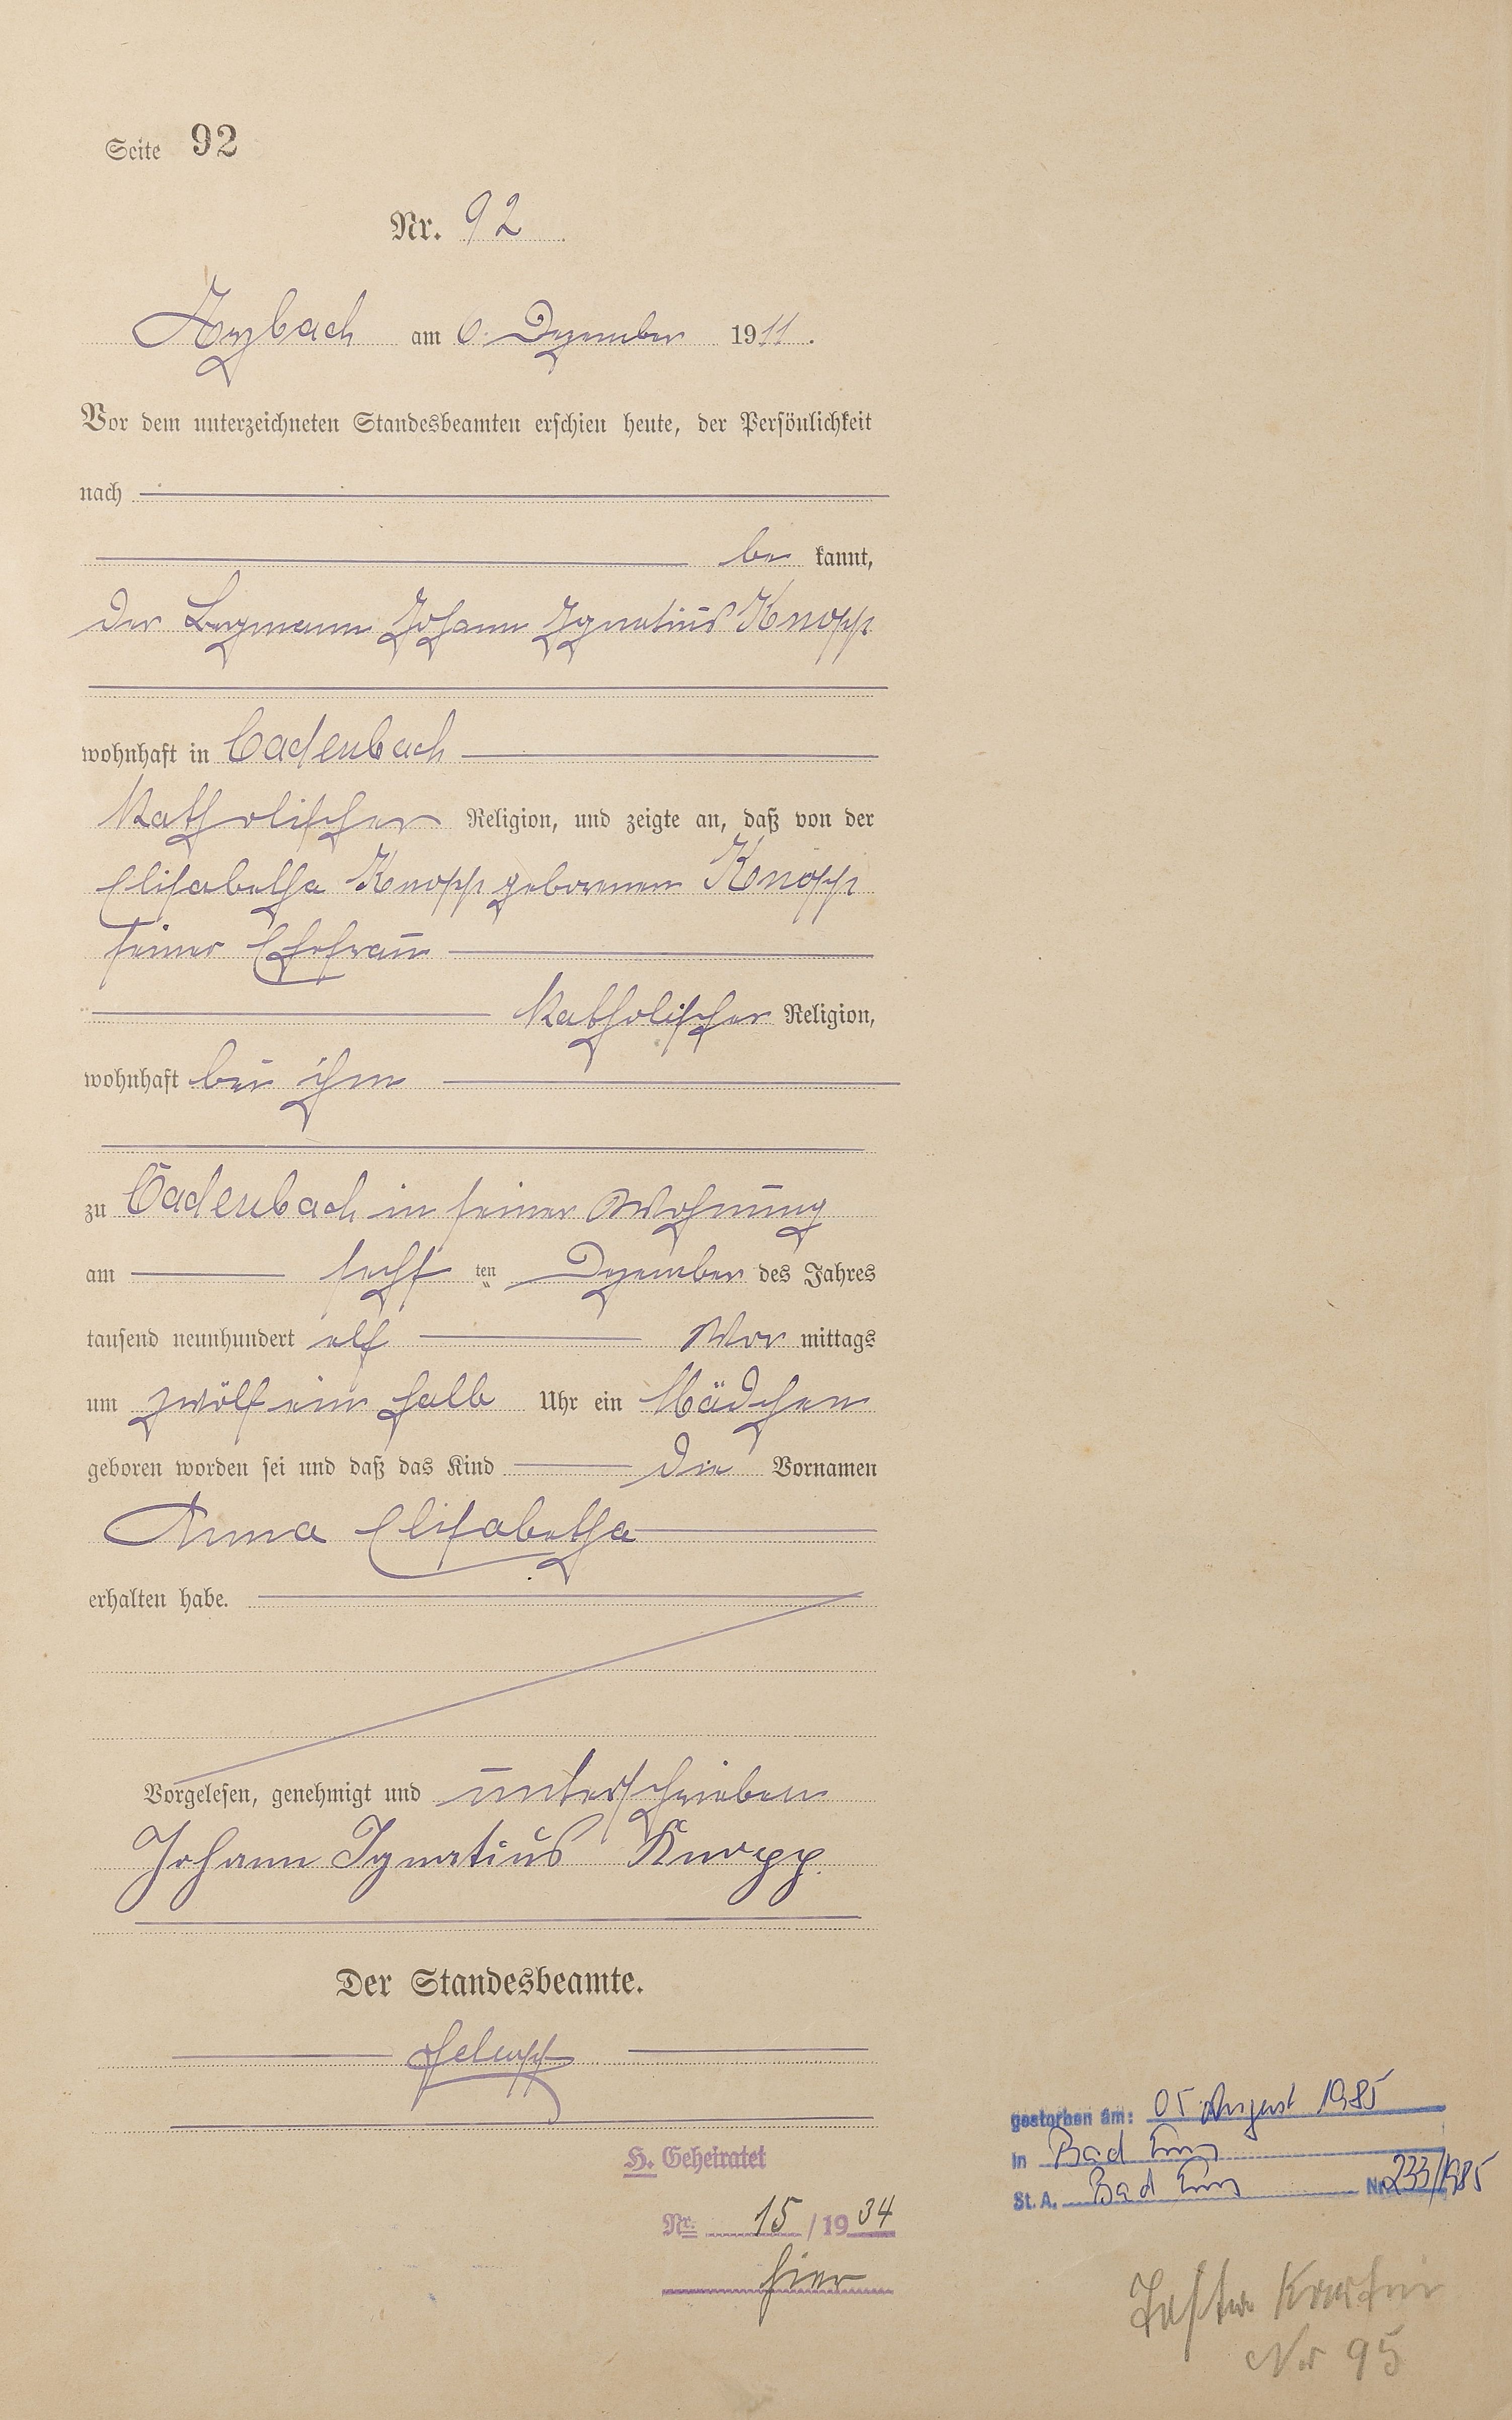 Seite 92
Nr. 92
Arzbach am 6. Dezember 1911.
Vor dem unterzeichneten Standesbeamten erschien heute, der Persönlichkeit
nach
be kannt,
der Bergmann Johann Ignatius Knopp
wohnhaft in Cadenbach
katholischer Religion, und zeigte an, daß von der
Elisabetha Knopp geborenen Knopp
seiner Ehefrau
katholischer Religion,
wohnhaft bei ihm
zu Cadenbach in seiner Wohnung
am sechs ten Dezember des Jahres
tausend neunhundert elf Vor mittags
um zwölf ein halb Uhr ein Mädchen
geboren worden sei und daß das Kind die Vornamen
Anna Elisabetha
erhalten habe.
Vorgelesen, genehmigt und unterschrieben
Johann Ignatius Knopp.
Der Standesbeamte.
H. Geheiratet
Nr. 15 / 1934
hier
gestorben am: 05 August 1985
in Bad Ems
St. A. Bad Ems Nr. 233/1985
Nr 95